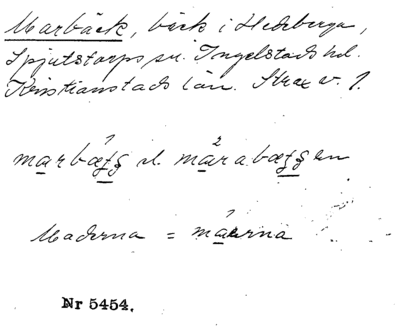 Marbäck, bäck i Hedeberga,
Spjutstorps sn. Ingelstads hd.
Kristianstads län. Strax v.
marbæʒʒ el. mårabæʒʒen
Maderna = 
Nr 5454.